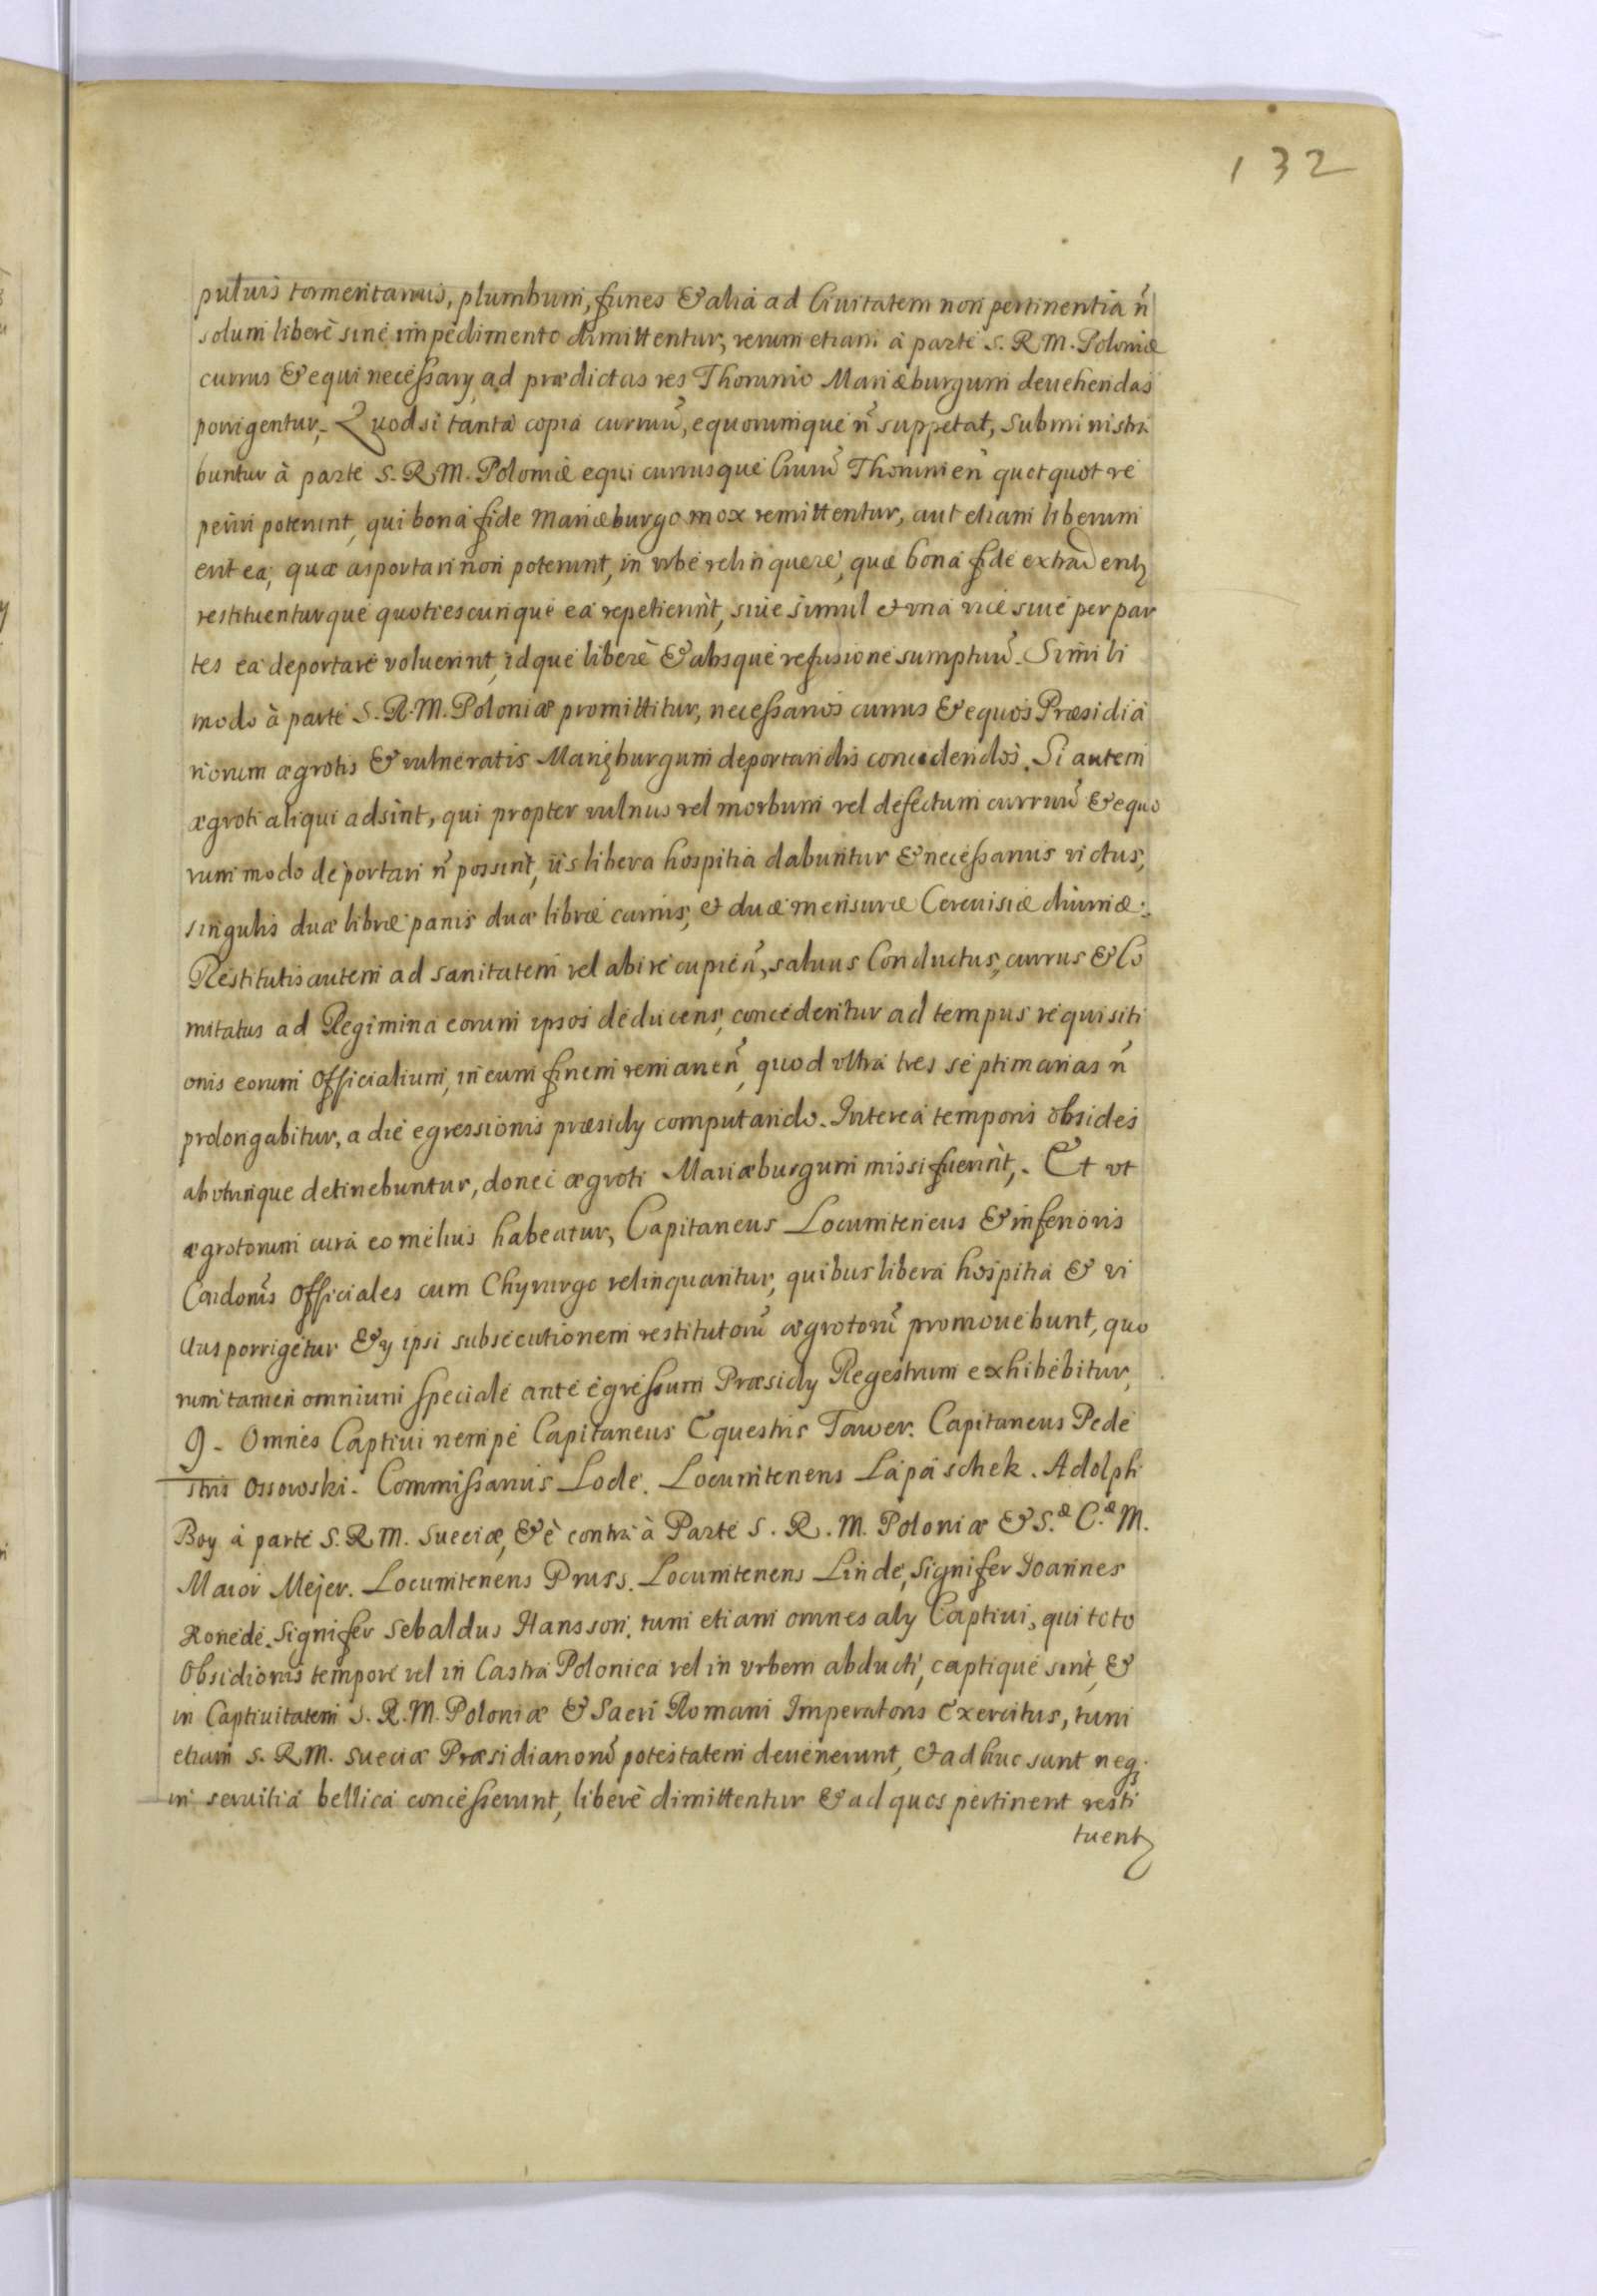 132
puluis tormentarius, plumbum, funes & alia ad Ciuitatem non pertinentia n̄
solum liberè sine impedimento dimittentur, verum etiam à parte S. R. M. Poloniæ
currus & equi necessarij ad prædictas res Thorunio Mariæburgum deuehendas
porrigentur, Quodsi tanta copia curruū, equorumque n̄ suppetat, subministra
buntur à parte S. R. M. Poloniæ equi currusque Ciuiū Thorunien̄ quotquot re
periri poterunt, qui bona fide Mariæburgo mox remittentur, aut etiam liberum
erit ea, quæ asportari non poterunt, in vrbe relinquere, quæ bona fide extradentꝫ
restituenturque quotiescunque ea repetierint, siue simul et vna vice siue per par
tes ea deportare voluerint, idque liberè & absque refusione sumptuū. Simili
modo à parte S. R. M. Poloniæ promittitur, necessarios currus & equos Præsidia
riorum ægrotis & vulneratis Marięburgum deportandis concedendos. Si autem
ægroti aliqui adsint, qui propter vulnus vel morbum vel defectum curruū & equo
rum modo deportari n̄ possint, iis libera hospitia dabuntur & necessarius victus,
singulis duæ libræ panis duæ libræ carnis, et duæ mensuræ Cereuisiæ diurnæ.
Restitutis autem ad sanitatem vel abire cupien̄, saluus Conductus, currus & Co
mitatus ad Regimina eorum ipsos deducens, concedentur ad tempus requisiti
onis eorum Officialium, in eum finem remanen̄, quod vltra tres septimanas n̄
prolongabitur, a die egressionis præsidij computando. Interea temporis obsides
ab vtrinque detinebuntur, donec ægroti Mariæburgum missi fuerint,. Et vt
ægrotorum cura eo melius habeatur, Capitaneus Locumteneus & inferioris
Cardonis Officiales cum Chyrurgo relinquantur, quibus libera hospitia & vi
ctus porrigetur & ij ipsi subsecutionem restitutorū ægrotorū promouebunt, quo
rum tamen omnium speciale ante egressum Præsidij Regestrum exhibebitur,
9. Omnes Captiui nempe Capitaneus Equestris Tawer. Capitaneus Pede
stris Ossowski. Commissarius Lode. Locumtenens Lapaschek. Adolph
Boy à parte S. R. M. Sueciæ, & è contra à Parte S. R. M. Poloniæ & S.æ C.æ M.
Maior Mejer. Locumtenens Pruss. Locumtenens Linde, Signifer Joannes
Ronede. Signifer Sebaldus Hansson. tum etiam omnes alij Captiui, qui toto
Obsidionis tempore vel in Castra Polonica vel in vrbem abducti, captique sint, &
in Captiuitatem S. R. M. Poloniæ & Sacri Romani Imperatoris Exercitus, tum
etiam S. R. M. Sueciæ Præsidiariorū potestatem deuenerunt, & adhuc sunt neqꝫ
in seruitia bellica concesserunt, liberè dimittentur & ad quos pertinent resti
tuentꝫ